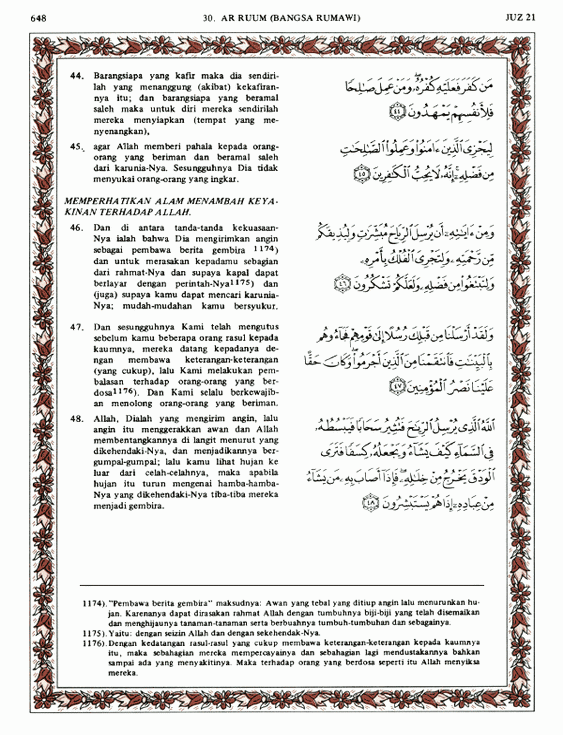 648 30. AR RUUM (BANGSA RUMAWI) JUZ 21
44. Barangsiapa yang kafir maka dia sendiri-
lah yang menanggung (akibat) kekafiran-
nya itu; dan barangsiapa yang beramal
saleh maka untuk diri mereka sendirilah
mereka menyiapkan (tempat yang me-
nyenangkan),
مَن كَفَرَ فَعَلَيْهِ كُفْرُهُۥ ۖ وَمَنْ عَمِلَ صَٰلِحًا
فَلِأَنفُسِهِمْ يَمْهَدُونَ ﴿٤٤﴾
45. agar Allah memberi pahala kepada orang-
orang yang beriman dan beramal saleh
dari karunia-Nya. Sesungguhnya Dia tidak
menyukai orang-orang yang ingkar.
لِيَجْزِىَ ٱلَّذِينَ ءَامَنُوا۟ وَعَمِلُوا۟ ٱلصَّٰلِحَٰتِ
مِن فَضْلِهِۦٓ ۚ إِنَّهُۥ لَا يُحِبُّ ٱلْكَٰفِرِينَ ﴿٤٥﴾
MEMPERHATIKAN ALAM MENAMBAH KEYA-
KINAN TERHADAP ALLAH.
46. Dan di antara tanda-tanda kekuasaan-
Nya ialah bahwa Dia mengirimkan angin
sebagai pembawa berita gembira 1174)
dan untuk merasakan kepadamu sebagian
dari rahmat-Nya dan supaya kapal dapat
berlayar dengan perintah-Nya1175) dan
(juga) supaya kamu dapat mencari karunia-
Nya; mudah-mudahan kamu bersyukur.
وَمِنْ ءَايَٰتِهِۦٓ أَن يُرْسِلَ ٱلرِّيَاحَ مُبَشِّرَٰتٍ وَلِيُذِيقَكُم
مِّن رَّحْمَتِهِۦ وَلِتَجْرِىَ ٱلْفُلْكُ بِأَمْرِهِۦ
وَلِتَبْتَغُوا۟ مِن فَضْلِهِۦ وَلَعَلَّكُمْ تَشْكُرُونَ ﴿٤٦﴾
47. Dan sesungguhnya Kami telah mengutus
sebelum kamu beberapa orang rasul kepada
kaumnya, mereka datang kepadanya de-
ngan membawa keterangan-keterangan
(yang cukup), lalu Kami melakukan pem-
balasan terhadap orang-orang yang ber-
dosa1176). Dan Kami selalu berkewajib-
an menolong orang-orang yang beriman.
وَلَقَدْ أَرْسَلْنَا مِن قَبْلِكَ رُسُلًا إِلَىٰ قَوْمِهِمْ فَجَآءُوهُم
بِٱلْبَيِّنَٰتِ فَٱنتَقَمْنَا مِنَ ٱلَّذِينَ أَجْرَمُوا۟ ۖ وَكَانَ حَقًّا
عَلَيْنَا نَصْرُ ٱلْمُؤْمِنِينَ ﴿٤٧﴾
48. Allah, Dialah yang mengirim angin, lalu
angin itu menggerakkan awan dan Allah
membentangkannya di langit menurut yang
dikehendaki-Nya, dan menjadikannya ber-
gumpal-gumpal; lalu kamu lihat hujan ke
luar dari celah-celahnya, maka apabila
hujan itu turun mengenai hamba-hamba-
Nya yang dikehendaki-Nya tiba-tiba mereka
menjadi gembira.
ٱللَّهُ ٱلَّذِى يُرْسِلُ ٱلرِّيَٰحَ فَتُثِيرُ سَحَابًا فَيَبْسُطُهُۥ
فِى ٱلسَّمَآءِ كَيْفَ يَشَآءُ وَيَجْعَلُهُۥ كِسَفًا فَتَرَى
ٱلْوَدْقَ يَخْرُجُ مِنْ خِلَٰلِهِۦ ۖ فَإِذَآ أَصَابَ بِهِۦ مَن يَشَآءُ
مِنْ عِبَادِهِۦٓ إِذَا هُمْ يَسْتَبْشِرُونَ ﴿٤٨﴾
1174). "Pembawa berita gembira" maksudnya: Awan yang tebal yang ditiup angin lalu menurunkan hu-
jan. Karenanya dapat dirasakan rahmat Allah dengan tumbuhnya biji-biji yang telah disemaikan
dan menghijaunya tanaman-tanaman serta berbuahnya tumbuh-tumbuhan dan sebagainya.
1175). Yaitu: dengan seizin Allah dan dengan sekehendak-Nya.
1176). Dengan kedatangan rasul-rasul yang cukup membawa keterangan-keterangan kepada kaumnya
itu, maka sebahagian mereka mempercayainya dan sebahagian lagi mendustakannya bahkan
sampai ada yang menyakitinya. Maka terhadap orang yang berdosa seperti itu Allah menyiksa
mereka.